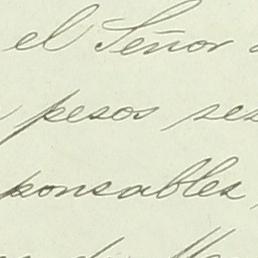 el Señor
pesos ses
ponsables,